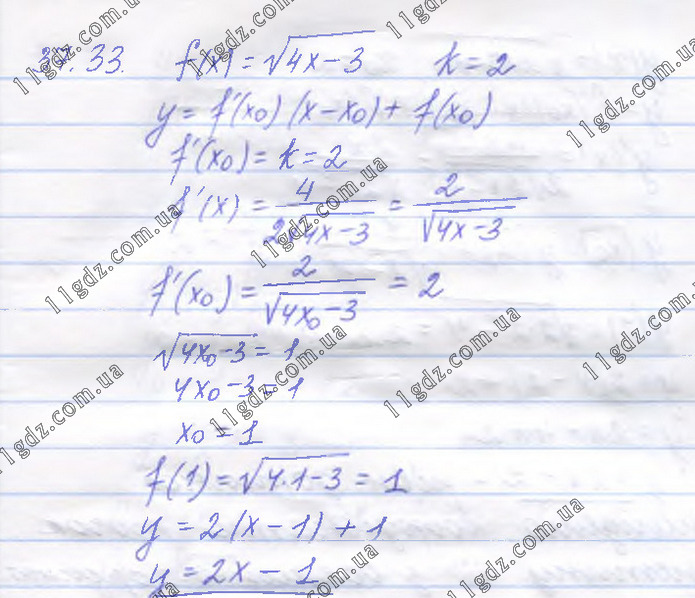 37.33. f(x) = √(4x-3) k = 2
y = f'(x₀)(x-x₀) + f(x₀)
f'(x₀) = k = 2
f'(x) = 4/(2√(4x-3)) = 2/√(4x-3)
f'(x₀) = 2/√(4x₀-3) = 2
√(4x₀-3) = 1
4x₀-3 = 1
x₀ = 1
f(1) = √(4·1-3) = 1
y = 2(x-1) + 1
y = 2x - 1
11gdz.com.ua
11gdz.com.ua
11gdz.com.ua
11gdz.com.ua
11gdz.com.ua
11gdz.com.ua
11gdz.com.ua
11gdz.com.ua
11gdz.com.ua
11gdz.com.ua
11gdz.com.ua